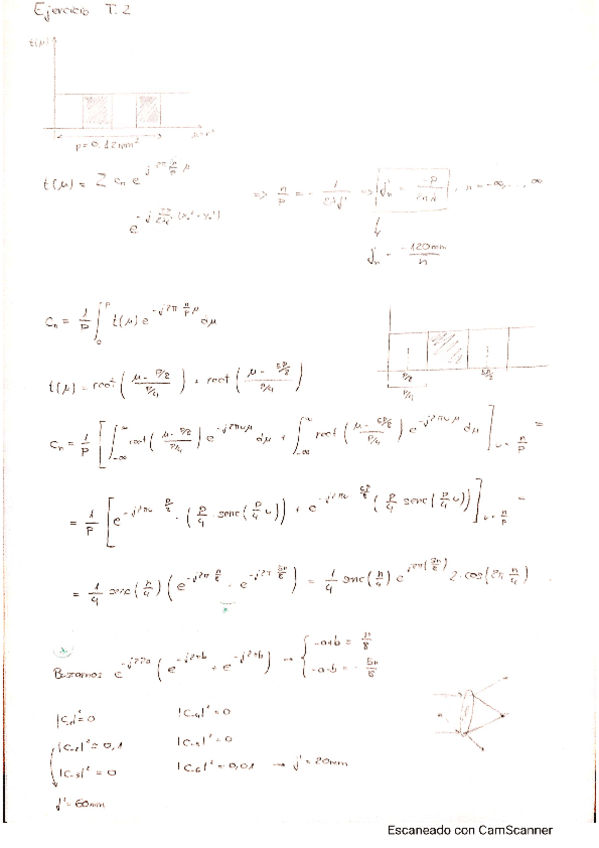 Ejercicio T.2
t(μ)
μ=r²
p=0,12mm²
t(μ) = Σ cn e^{j 2π n/p μ}
e^{-j π/λf' (x0²+y0²)}
=> n/p = - 1/2λf' => f'n = -p/2nλ , n=-∞,...,∞
f'n = -120mm/n
cn = 1/p ∫₀^p t(μ) e^{-j2π n/p μ} dμ
p/8 5p/8
p/4
t(μ) = rect( (μ - p/8)/(p/4) ) + rect( (μ - 5p/8)/(p/4) )
cn = 1/p [ ∫_{-∞}^{∞} rect( (μ - p/8)/(p/4) ) e^{-j2πuμ} dμ + ∫_{-∞}^{∞} rect( (μ - 5p/8)/(p/4) ) e^{-j2πuμ} dμ ]_{u=n/p} =
= 1/p [ e^{-j2πu p/8} · ( p/4 senc( p/4 u)) + e^{-j2πu 5p/8} ( p/4 senc( p/4 u)) ]_{u=n/p} =
= 1/4 senc( n/4 ) ( e^{-j2π n/8} + e^{-j2π 5n/8} ) = 1/4 senc( n/4 ) e^{j2π( 3n/8 )} 2·cos(2π n/4 )
Buscamos e^{-j2πa} ( e^{-j2πb} + e^{-j2πb} ) → { -a+b = n/8
-a-b = - 5n/8
|C-1|²=0 |C-4|²=0
|C-2|²=0,1 |C-5|²=0
|C-3|²=0 |C-6|²=0,01 → f'=20mm
f'=60mm
Escaneado con CamScanner